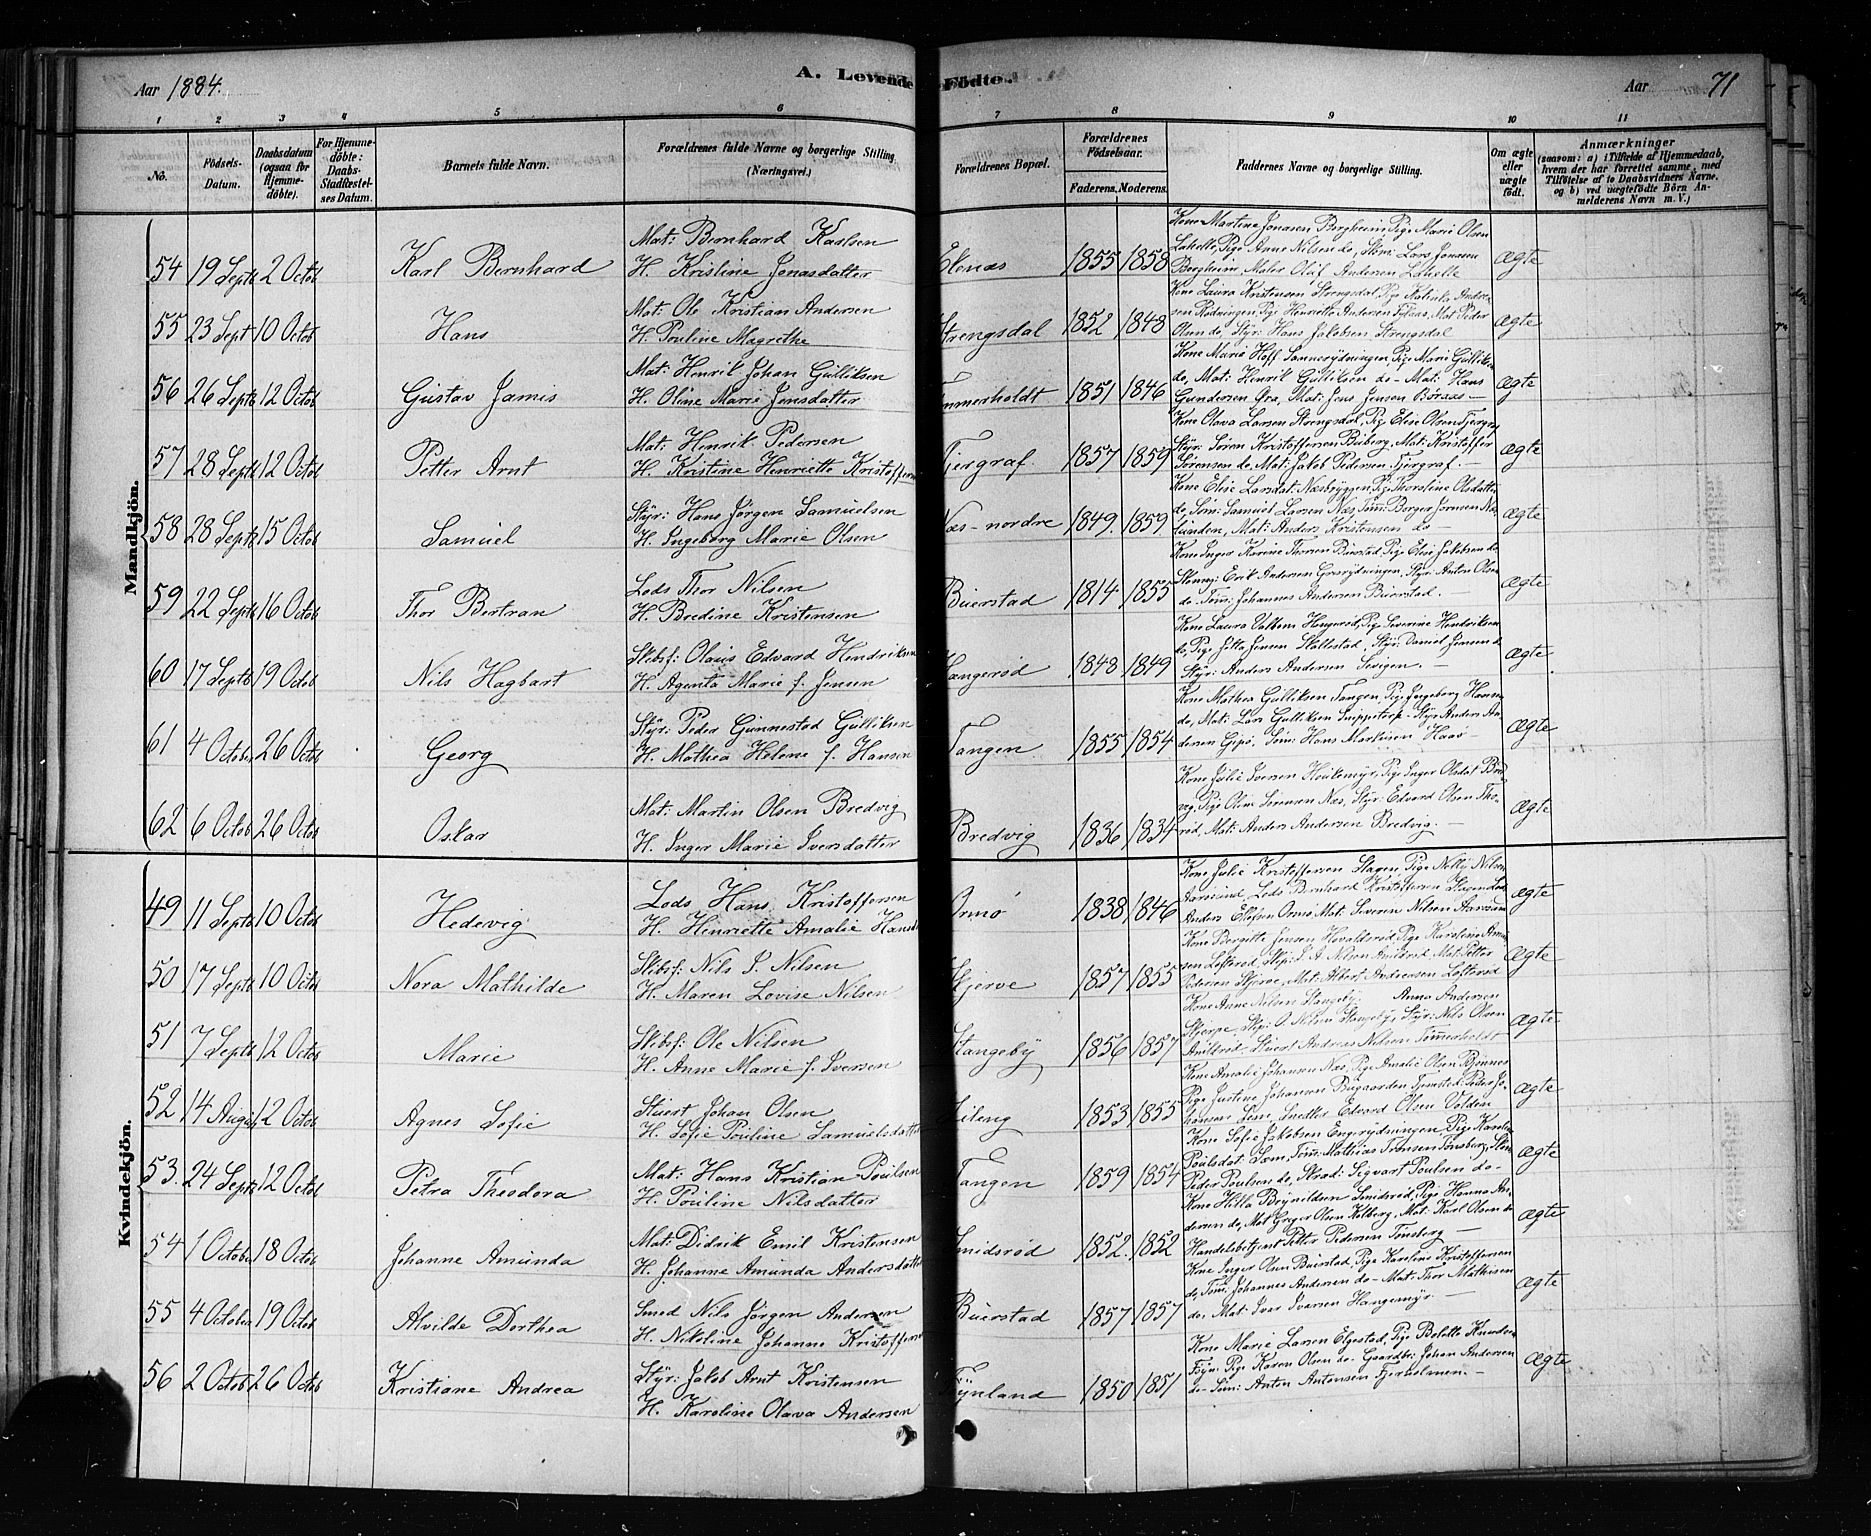 Aar 1884.
A. Levende Födte.
Aar 71
1 2 3 4 5 6 7 8 9 10 11
No.
Födsels-Datum.
Daabsdatum (ogsaa for Hjemme-döbte).
For Hjemme-döbte: Daabs-Stadfæstel-ses Datum.
Barnets fulde Navn.
Forældrenes fulde Navne og borgerlige Stilling. (Næringsvei.)
Forældrenes Bopæl.
Forældrenes Födselsaar.
Faderens. Moderens.
Faddernes Navne og borgerlige Stilling.
Om ægte eller uægte födt.
Anmærkninger
(saasom: a) i Tilfælde af Hjemmedaab, hvem der har forrettet samme, med Tilföielse af to Daabsvidners Navne, og b) ved uægtefödte Börn An-melderens Navn m. V.)
Mandkjön.
54 19 Septb 2 Octob Karl Bernhard
Mat: Bernhard Karlsen
H. Kristine Jonasdatter
1855 1858
Kone Martine Jonasen Bergheim, Pige Marie Olsen
Lahelle, Pige Anne Nilsen do, Skom: Lars Jonasen
Bergheim Maler Oluf Andersen Lahelle
Ægte
55 23 Sept 10 Octob Hans
Mat: Ole Kristian Andersen
H. Pouline Magrethe
Strengsdal 1852 1848
Kone Laura Kristensen Strengsdal, Pige Katinka Ander-
sen Rödningen, Pige Henriette Andersen, Mat Peder
Olsen do, Styr: Hans Jakobsen Strengsdal
Ægte
56 26 Septb 12 Octob Gustav Jamis
Mat: Henrik Johan Gulliksen
H. Oline Marie Jensdatter
Tömmerholdt 1851 1846
Kone Marie Hoff Sönnerydningen, Pige Marie Gulliksen
do, Mat: Henrik Gulliksen do - Mat: Hans
Gundersen Øra, Mat: Jens Jensen Böraas -
Ægte
57 28 Septb 12 Octob Petter Arnt
Mat: Henrik Pedersen
H. Kristine Henriette Kristoffersen
Fjergraf 1857 1859
Kone Olava Larsen Strengsdal, Pige Elise Olsen Fjergraf
Styr: Sören Kristoffersen Buberg, Mat: Kristoffer
Sörensen do, Mat: Jakob Pedersen Fjergraf. -
Ægte
58 28 Septb 15 Octob Samuel
Styr: Hans Jörgen Samuelsen
H. Ingeborg Marie Olsen
Næs-nordre 1849. 1859
Kone Elise Larsdat: Næsbryggen, Pige Thoroline Olsdatter
do, Töm: Samuel Larsen Næs, Töm: Borger Jörensen
Mat: Anders Kristensen do -
Ægte
59 22 Septb 16 Octob Thor Bertran
Lods Thor Nilsen
H. Bredine Kristensen
Buerstad 1814 1855
Kone Inger Karine Thorsen Buerstad, Pige Elise Jakobsen do
Erik Andersen Grasrydningen, Styr: Anton Olsen
do. Töm: Johannes Andersen Buerstad. -
Ægte
60 17 Septb 19 Octob Nils Hagbart
Skibsf: Olaus Edvard Hendriksen
H. Agenta Marie f. Jensen
Hengeröd 1848 1849
Kone Laura Hengeröd, Pige Severine Hendriksen
do, Pige Jensen Skallestad, Styr: Daniel Jensen do
Styr: Anders Andersen -
Ægte.
61 4 October 26 Octob Georg
Styr: Peder Gunnestad Gulliksen
H. Mathea Helene f. Hansen
Tangen 1855 1854
Kone Mathea Gulliksen Tangen, Pige Ingeborg Hansen
do, Mat: Lars Gulliksen Snippetorp - Styr Anders An-
dersen Gipö, Töm: Hans Martinsen Haas -
Ægte
62 6 Octob 26 Octob Oskar
Mat: Martin Olsen Bredvig
H. Inger Marie Iversdatter
Bredvig 1836 1834
Kone Julie Iversen Houkemyr, Pige Inger Olsdat Bred-
vig, Pige Oline Sörensen Næs, Styr: Edvard Olsen Tho-
röd, Mat: Anders Andersen Bredvig. -
Ægte
Kvindekjön.
49 11 Septb 10 Octob Hedevig
Lods Hans Kristoffersen
H. Henriette Amalie
Ormö 1838 1846
Kone Julie Kristoffersen Stagen, Pige Nelly Nilsen
Aarösund, Lods Bernhard Kristoffersen Stagen Lods
Anders Ellefsen Ormö Mat: Severin Nilsen Aarösund
Ægte
50 17 Septb 10 Octob Nora Mathilde
Skibsf: Nils S. Nilsen
H. Maren Lovise Nilsen
Skjerve 1857 1855
Kone Bergitte Jensen Hovaldsröd, Pige Karoline
sen Lofteröd, Nilsen Mat: Petter
Pedersen Skjerve, Mat: Albert Andreasen Lofteröd
Ægte
51 7 Septb 12 Octob Marie
Skibsf: Ole Nilsen
H. Anne Marie f. Iversen
Stangeby 1856 1857
Kone Anne Nilsen Stangeby, Anna Andersen
Skjerpe, Skip: O. Nilsen Stangeby, Styr: Nils Olsen
Stuert Andreas Nilsen Tömmerholdt
Ægte
52 14 August 12 Octob Agnes Sofie
Stuert Johan Olsen
H. Sofie Pouline Samuelsdatter
1853 1855
Kone Amalie Johansen Næs, Pige Amalie Olsen Bjönnes
Pige Justine Johansen Bugaarden, Peder Jo-
hansen Sem, Snedker Edvard Olsen Volden
Ægte
53. 24 Septb 12 Octob Petra Theodora
Mat: Hans Kristian Poulsen
H. Pouline Nilsdatter
Tangen 1859 1854
Kone Sofie Jakobsen Engerydningen, Pige Karoline
Poulsdat: Sæm, Töm: Mathias Tönsen Tönsberg,
Peder Poulsen do, Skræd: Sigvart Poulsen do -
Ægte
54 1 October 18 Octob Johanne Amunda
Mat: Didrik Emil Kristensen
H. Johanne Amunda Andersdatter
Smidsröd 1852. 1852
Kone Hilla Brynildsen Smidsröd, Pige Hanna An-
dersen do, Mat Greger Olsen Kolberg, Mat: Karl Olsen do
Handelsbetjent Petter Pedersen Tönsberg -
Ægte
55 4 October 19 Octob Alvilde Dorthea
Smed Nils Jörgen Andersen
H. Nikoline Johanne Kristoffersen
Buerstad 1857 1857
Kone Inger Olsen Buerstad, Pige Karoline Kristoffersen
do, Töm: Johannes Andersen do - Mat: Thor Mathisen
do, Mat: Ivar Iversen Hangemyr -
Ægte
56 2 Octob 26 Octob Kristiane Andrea
Styr: Jakob Arnt Kristensen
H. Karoline Olava Andersen
Föynland 1850 1851
Kone Marie Larsen Elgestad, Pige Bolette Knudsen
Föyn, Pige Karen Olsen do - Gaardbr: Johan Andersen
do - Töm: Anton Antonsen Fjerholmen. -
Ægte